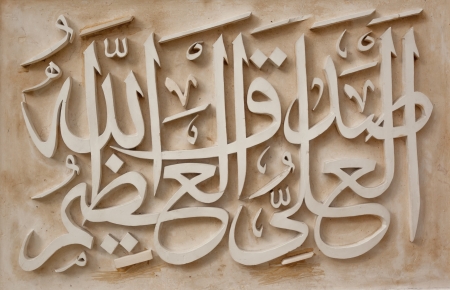 صَدَقَ اللّٰهُ
العَلِيُّ العَظِيمُ